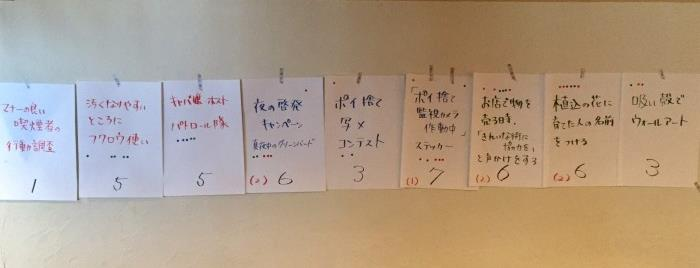 マナーの良い
喫煙者の
行動調査
1
汚くなりやすい
ところに
フクロウ使い
5
キャバ嬢 ホスト
パトロール隊
5
夜の啓発
キャンペーン
真夜中のグリーンバード
(2) 6
ポイ捨て
写メ
コンテスト
3
「ポイ捨て
監視カメラ
作動中」
ステッカー
(1) 7
お店で物を
売る時、
「きれいな街に
協力を」
と声かけをする
(2) 6
植込の花に
育てた人の名前
をつける
(2) 6
吸い殻で
ウォールアート
3